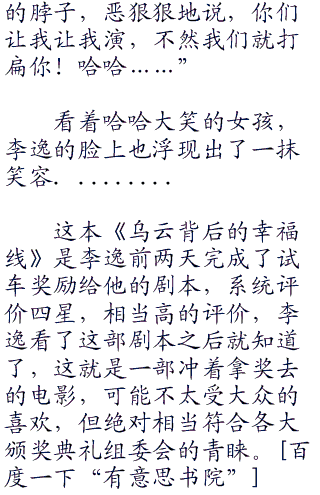 的脖子，恶狠狠地说，你们
让我让我演，不然我们就打
扁你！哈哈……”
看着哈哈大笑的女孩，
李逸的脸上也浮现出了一抹
笑容．．．．．．．．．
这本《乌云背后的幸福
线》是李逸前两天完成了试
车奖励给他的剧本，系统评
价四星，相当高的评价，李
逸看了这部剧本之后就知道
了，这就是一部冲着拿奖去
的电影，可能不太受大众的
喜欢，但绝对相当符合各大
颁奖典礼组委会的青睐。[百
度一下“有意思书院”]